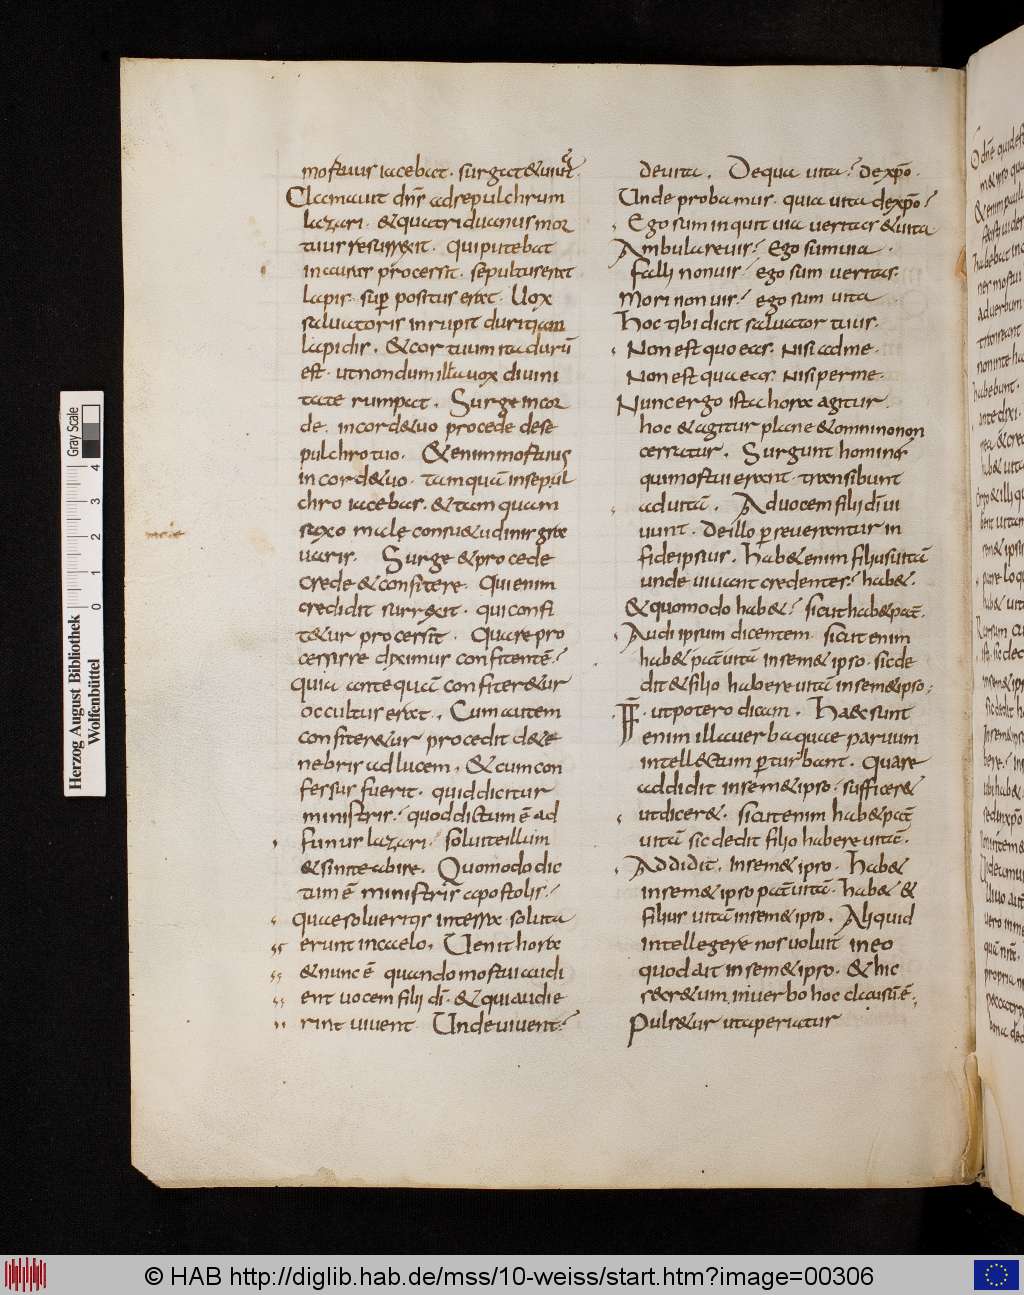 mortuus iacebat · surgat & uiuat ·
Clamauit dn̄s ad sepulchrum
lazari · & quatriduanus mor
tuus resurrexit · qui putebat
in auras processit · sepultus erat
lapis · sup̄ positus erat · Uox
saluatoris inrupit duritiam
lapidis . & cor tuum ita durū
est · ut nondum illa uox diuini
tate rumpat . Surge in cor
de · in corde tuo procede de se
pulchro tuo . & enim mortuus
in corde tuo · tamquā in sepul
chro iacebas · & tam quam
saxo malę consuetudinis graua
uaris . Surge & procede
crede & confitere . Qui enim
credidit surrexit · qui confi
tetur processit · Quare pro
cessisse diximus confitentē ?
quia antequā confiteretur
occultus erat . Cum autem
confitetur procedit de te
nebris ad lucem . & cum con
fessus fuerit · quid dicitur
ministris ? quod dictum ē ad
funus lazari · soluite illum
& sinite abire . Quomodo dic
tum ē ministris apostolis ·
quae solueritis in terra · soluta
erunt in caelo . Uenit hora
& nunc ē quando mortui audi
ent uocem filii dī · & qui audie
rint uiuent · Unde uiuent ?
de uita . De qua uita ? de xp̄o ·
Unde probamus · quia uita de xp̄o ?
Ego sum inquit uia ueritas & uita
Ambulare uis ? ego sum uia ·
falli non uis · ego sum ueritas ·
Mori non uis ? ego sum uita
Hoc tibi dicit saluator tuus ·
Non est quo eas · nisi ad me ·
Non est qua eas · nisi per me ·
Nunc ergo ista hora agitur
hoc & agitur plane & omnino non
cessatur . Surgunt homines
qui mortui erant · transibunt
ad uitā . Ad uocem filii dī ui
uunt · de illo p̱seuerantur in
fide ipsius . Habet enim filius uitā
unde uiuant credentes ? habet .
& quomodo habet ? sicut habet pat̄ ·
Audi ipsum dicentem · sicut enim
habet pat̄ uitā in semet ipso · sic de
dit & filio habere uitā in semet ipso ·
FF · ut potero dicam . Haec sunt
enim illa uerba quae paruum
intellectum p̱turbant . quare
addidit in semet ipso · sufficeret
ut diceret · sicut enim habet pat̄
uitā sic dedit filio habere uitā ·
Addidit . in semet ipso · habet
in semet ipso pat̄ uitā · habet &
filius uitā in semet ipso . Aliquid
intellegere nos uoluit in eo
quod ait in semet ipso · & hic
secretum in uerbo hoc clausū ē ·
Pulsetur ut aperiatur
Herzog August Bibliothek
Wolfenbüttel
0 1 2 3 4
Gray Scale
© HAB http://diglib.hab.de/mss/10-weiss/start.htm?image=00306